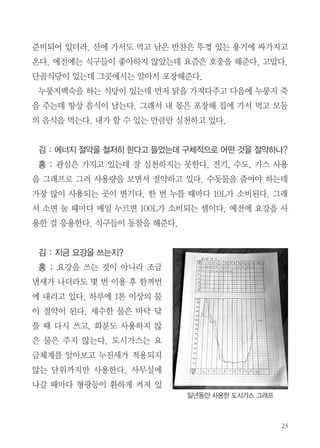 준비되어 있더라. 산에 가서도 먹고 남은 반찬은 뚜껑 있는 용기에 싸가지고
온다. 예전에는 식구들이 좋아하지 않았는데 요즘은 호응을 해준다. 고맙다.
단골식당이 있는데 그곳에서는 알아서 포장해준다.
누룽지백숙을 하는 식당이 있는데 먼저 닭을 가져다주고 다음에 누룽지 죽
을 주는데 항상 음식이 남는다. 그래서 내 몫은 포장해 집에 가서 먹고 모둠
의 음식을 먹는다. 내가 할 수 있는 만큼만 실천하고 있다.
김 : 에너지 절약을 철저히 한다고 들었는데 구체적으로 어떤 것을 절약하나?
홍 : 관심은 가지고 있는데 잘 실천하지는 못한다. 전기, 수도, 가스 사용
을 그래프로 그려 사용량을 보면서 절약하고 있다. 수돗물을 줄여야 하는데
가장 많이 사용되는 곳이 변기다. 한 번 누를 때마다 10L가 소비된다. 그래
서 소변 눌 때마다 매일 누르면 100L가 소비되는 셈이다. 예전에 요강을 사
용한 걸 응용한다. 식구들이 동참을 해준다.
김 : 지금 요강을 쓰는지?
홍 : 요강을 쓰는 것이 아니라 조금
냄새가 나더라도 몇 번 이용 후 한꺼번
에 내리고 있다. 하루에 1톤 이상의 물
이 절약이 된다. 세수한 물은 바닥 닦
을 때 다시 쓰고, 화분도 사용하지 않
은 물은 주지 않는다. 도시가스는 요
금체계를 알아보고 누진세가 적용되지
않는 단위까지만 사용한다. 사무실에
나갈 때마다 형광등이 환하게 켜져 있
일년동안 사용한 도시가스 그래프
23